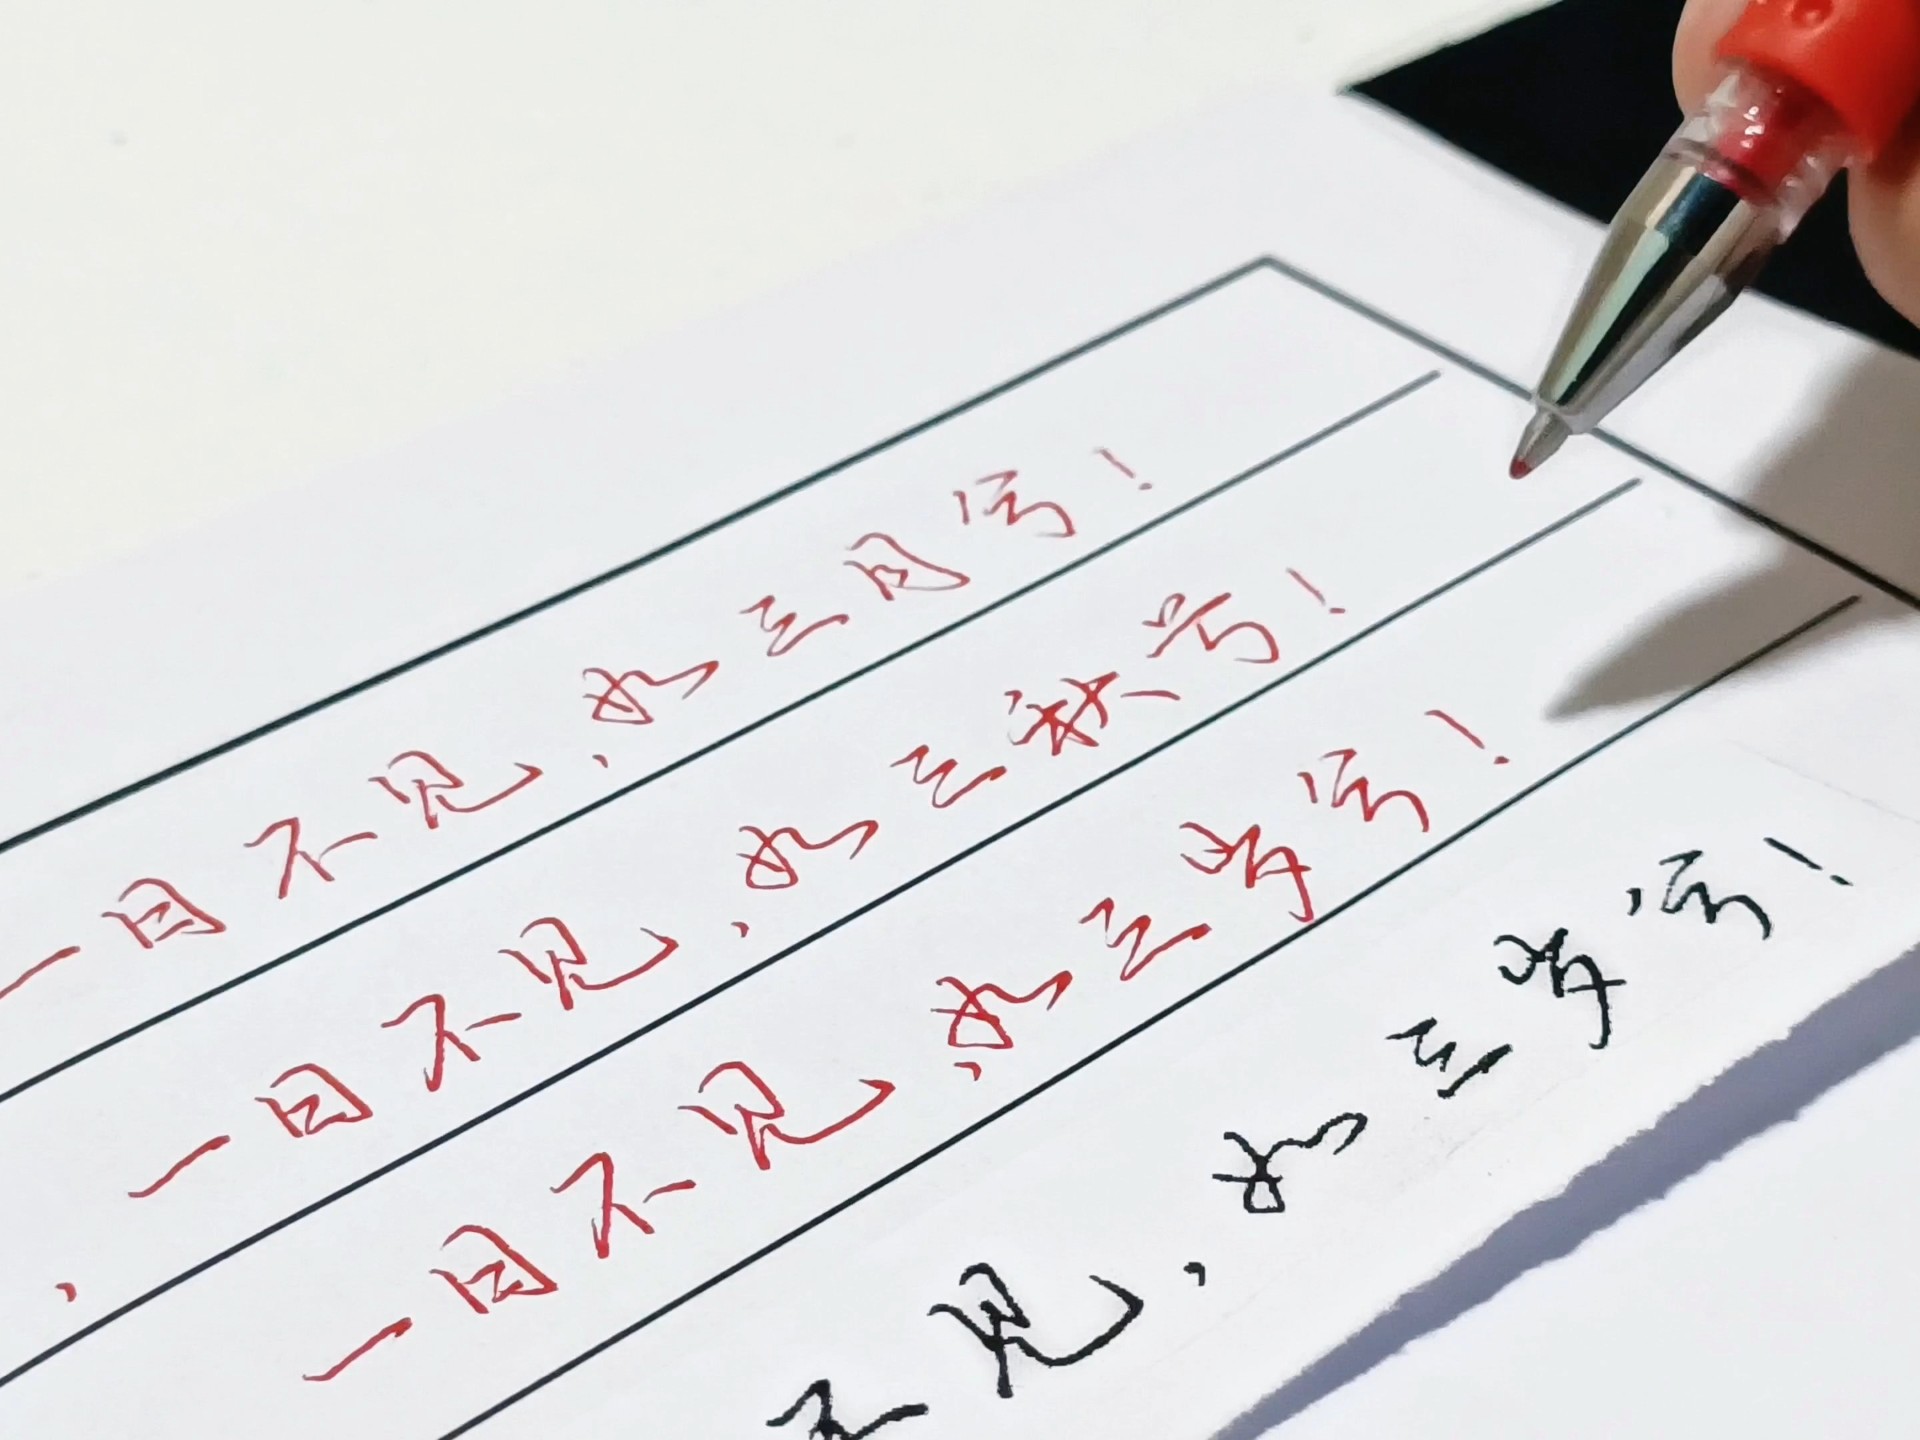 一日不见，如三月兮！
一日不见，如三秋兮！
，一日不见，如三岁兮！
不见，如三岁兮！